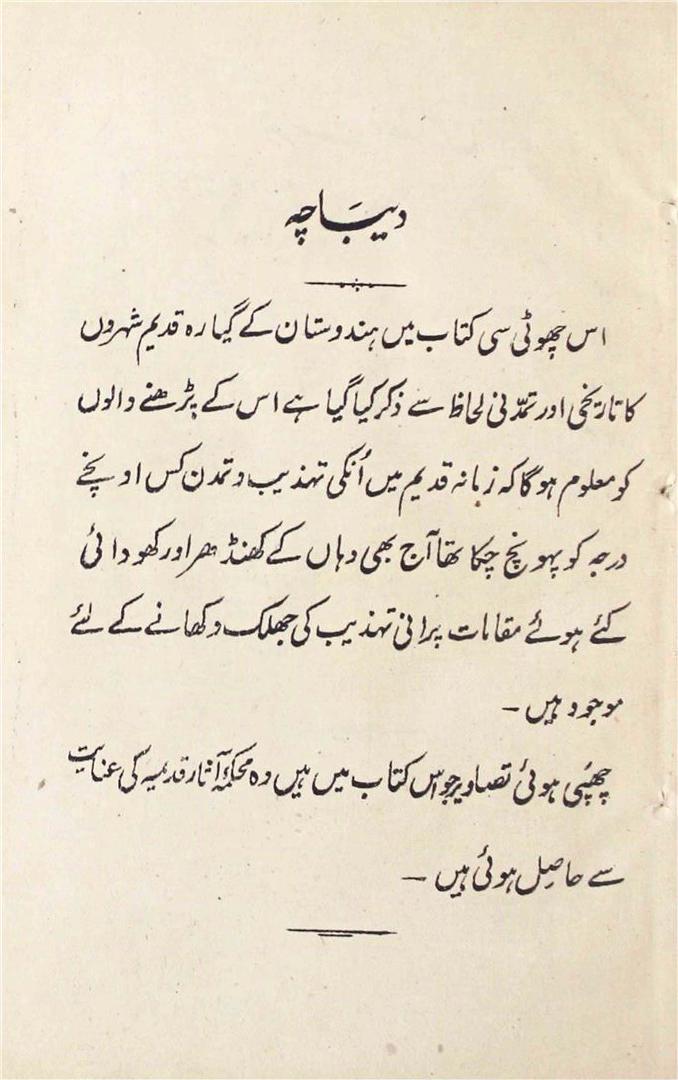 دیباچہ
اس چھوٹی سی کتاب میں ہندوستان کے گیارہ قدیم شہروں
کا تاریخی اور تمدّنی لحاظ سے ذکر کیا گیا ہے اس کے پڑھنے والوں
کو معلوم ہوگا کہ زمانہ قدیم میں اُنکی تہذیب و تمدن کس اونچے
درجہ کو پہونچ چکا تھا آج بھی وہاں کے کھنڈھر اور کھودائی
کئے ہوئے مقامات پرانی تہذیب کی جھلک دکھانے کے لئے
موجود ہیں۔
چھپی ہوئی تصاویر جو اس کتاب میں ہیں وہ محکمۂ آثار قدیمہ کی عنایت
سے حاصِل ہوئی ہیں۔